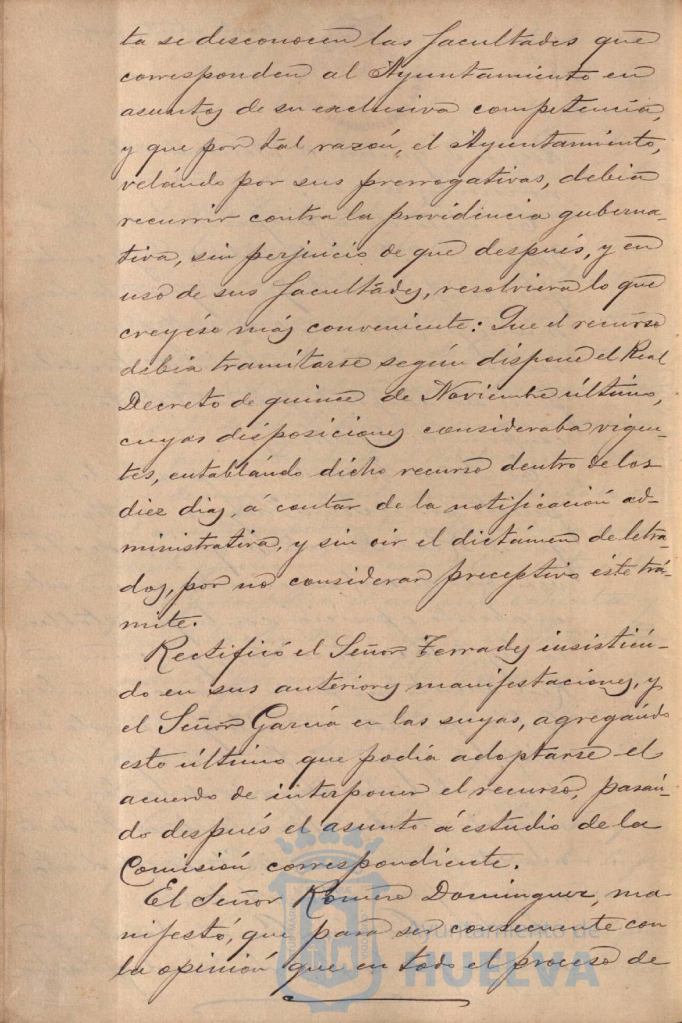 ta se desconocen las facultades que
corresponden al Ayuntamiento en
asuntos de su exclusiva competencia,
y que por tal razón, el Ayuntamiento,
velando por sus prerrogativas, debia
recurrir contra la providencia guberna-
tiva, sin perjuicio de que después, y en
uso de sus facultades, resolviera lo que
creyése más conveniente: Que el recurso
debia tramitarse según dispone el Real
Decreto de quince de Noviembre último,
cuyas disposiciones consideraba vigen-
tes, entablándo dicho recurso dentro de los
diez dias, á contar de la notificación ad-
ministrativa, y sin oir el dictámen de letra-
dos, por no considerar preceptivo éste trá-
mite.
Rectificó el Señor Terrades insistién-
do en sus anteriores manifestaciones, y
el Señor García en las suyas, agregándo
este último que podía adoptarse el
acuerdo de interponer el recurso, pasán-
do después el asunto á estudio de la
Comisión correspondiente.
El Señor Romero Dominguez, ma-
nifestó, que para ser consecuente con
la opinión que en todo el proceso de
Ayuntamiento de
HUELVA